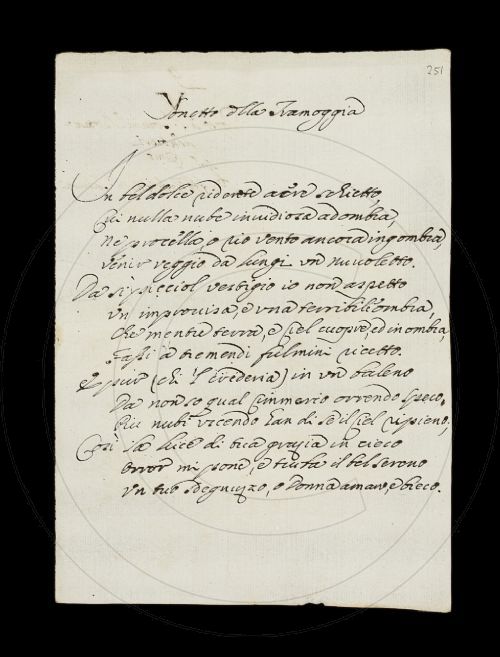 251
Sonetto della Tramoggia
In bel dolce ridente aere schietto,
Cui nulla nube invidiosa adombra,
Nè procella, o rio vento ancora ingombra,
Venir veggio da lungi un nuvoletto.
Da sì picciol vestigio io non aspetto
Un improvisa, e una terribil'ombra,
Che mentre terra, e ciel cuopre, ed inombra,
Fassi a tremendi fulmini ricetto.
E pur (chi 'l crederia) in un baleno
Da non so qual cimmerio orrendo speco,
Più nubi uscendo han di sè il ciel ripieno.
Così la luce di tua grazia in cieco
Orror mi pone, e turba il bel sereno
Un tuo sdegnuzzo, o Donna amaro, e bieco.